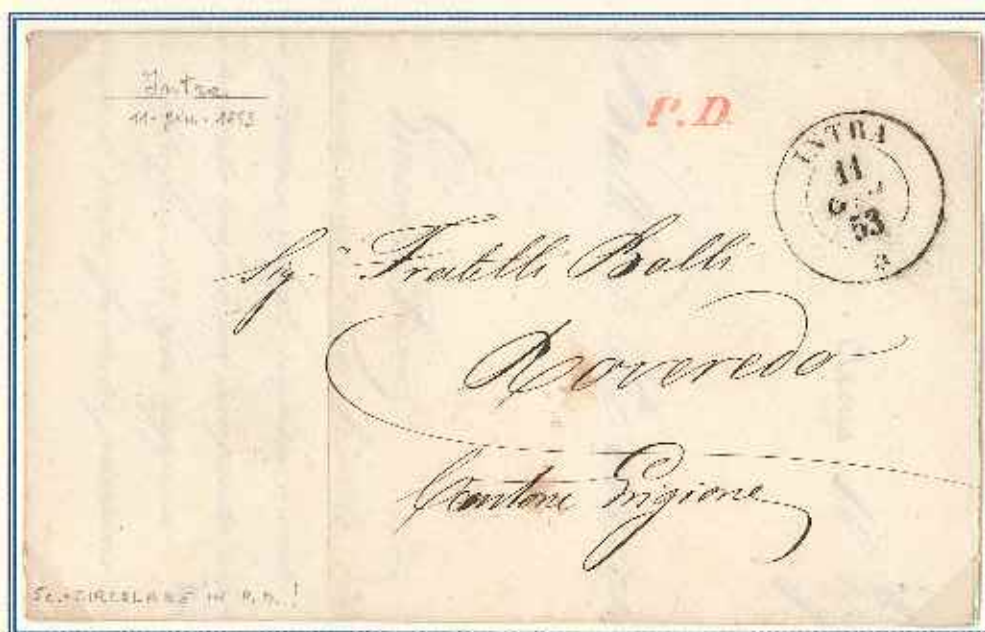 Intra
11 - gen. - 1853
P.D.
INTRA
11
GEN
53
Sig.ri Fratelli Balli
Roveredo
Cantone Grigione
CIRCOLARE IN P.D.!